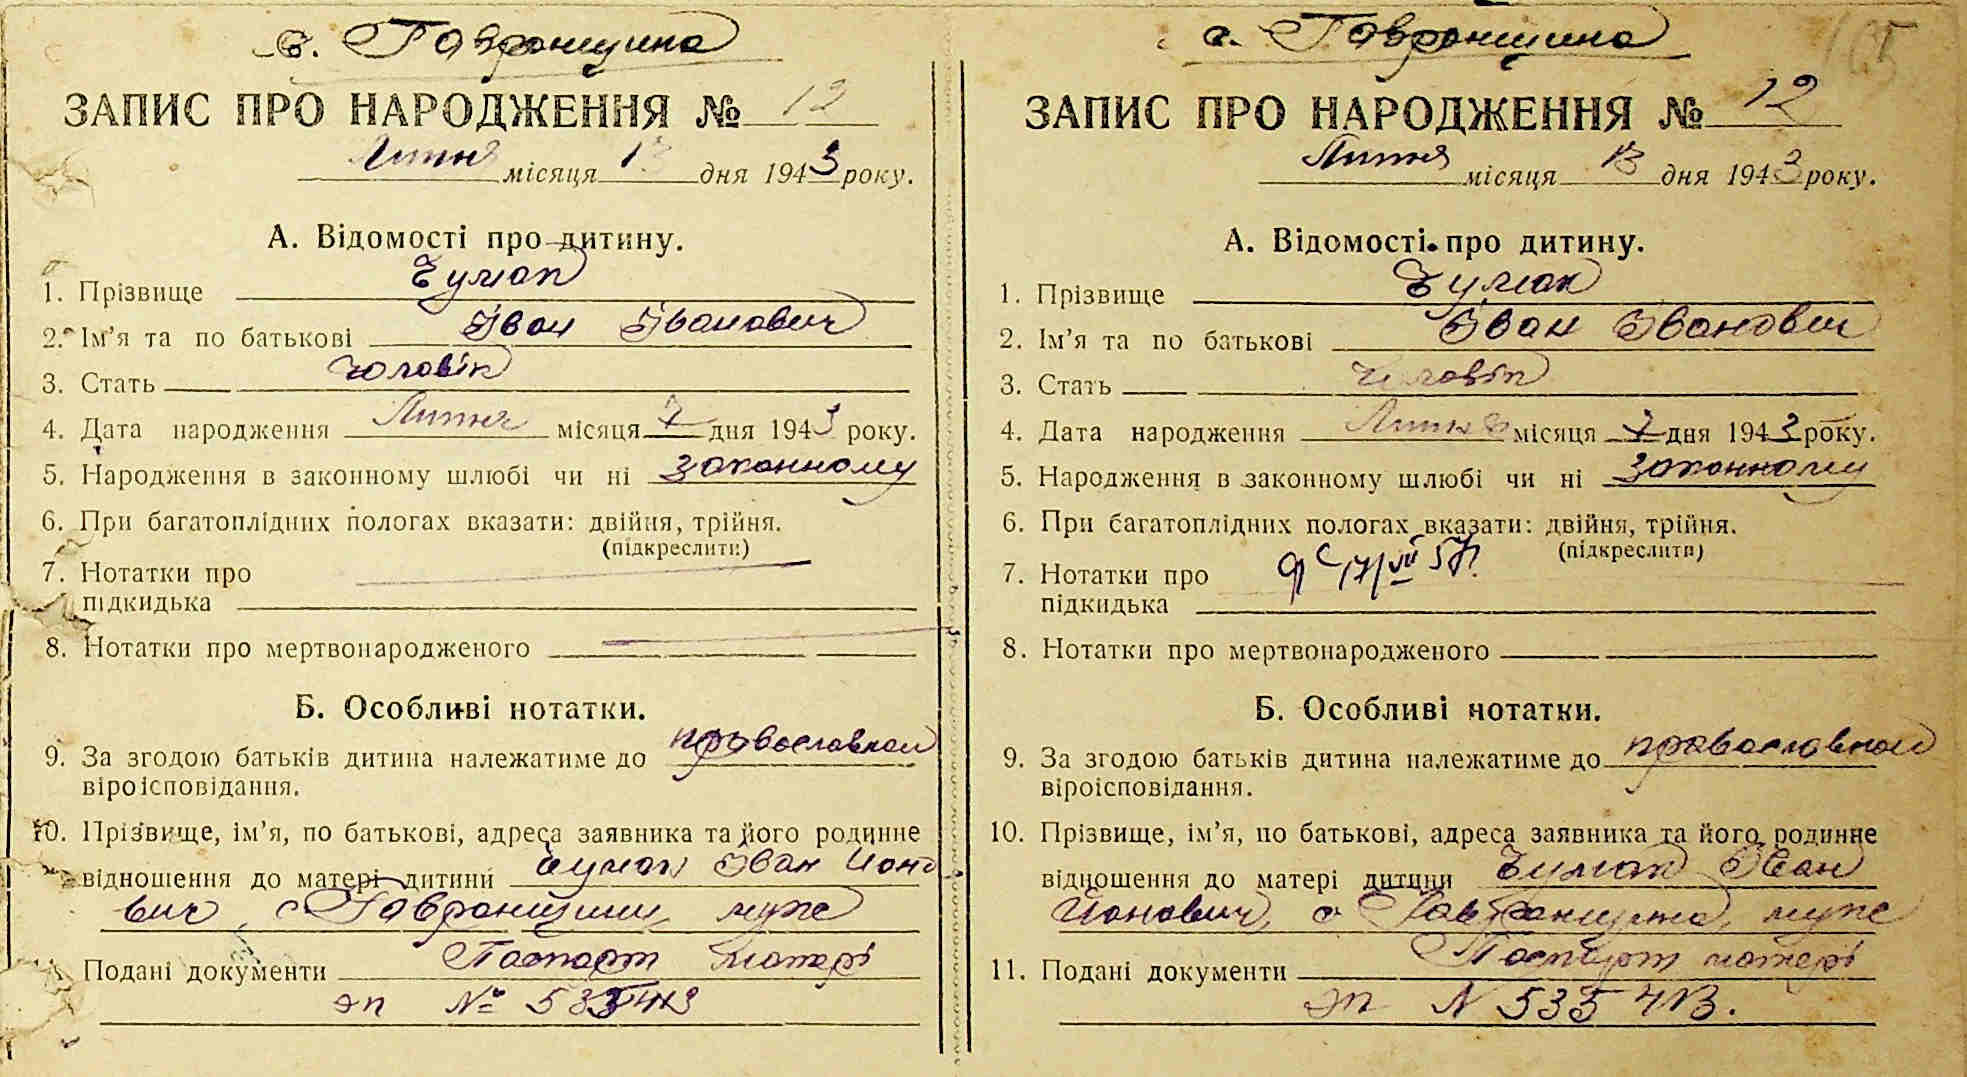 с. Гавронщина
ЗАПИС ПРО НАРОДЖЕННЯ № 12
Липня місяця 13 дня 1943 року.
А. Відомості про дитину.
1. Прізвище Чумак
2. Ім’я та по батькові Іван Іванович
3. Стать чоловік
4. Дата народження Липня місяця 7 дня 1943 року.
5. Народження в законному шлюбі чи ні законному
6. При багатоплідних пологах вказати: двійня, трійня.
(підкреслити)
7. Нотатки про
підкидька
8. Нотатки про мертвонародженого
Б. Особливі нотатки.
9. За згодою батьків дитина належатиме до православної
віроісповідання.
10. Прізвище, ім’я, по батькові, адреса заявника та його родинне
відношення до матері дитини Чумак Іван Йоно
вич, с Гавронщини, муже
11. Подані документи Паспорт матері
ЭП № 535413
с. Гавронщина
ЗАПИС ПРО НАРОДЖЕННЯ № 12
Липня місяця 13 дня 1943 року.
А. Відомості про дитину.
1. Прізвище Чумак
2. Ім’я та по батькові Іван Іванович
3. Стать Чоловік
4. Дата народження Липня місяця 7 дня 1943 року.
5. Народження в законному шлюбі чи ні законному
6. При багатоплідних пологах вказати: двійня, трійня.
(підкреслити)
7. Нотатки про
підкидька
8. Нотатки про мертвонародженого
Б. Особливі нотатки.
9. За згодою батьків дитина належатиме до православної
віроісповідання.
10. Прізвище, ім’я, по батькові, адреса заявника та його родинне
відношення до матері дитини Чумак Іван
Йонович, с Гавронщина, муже
11. Подані документи Паспорт матері
ЭП N 535413.